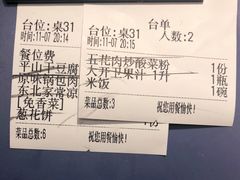 台位:桌31
时间:11-07 20:14
餐位费
平山干豆腐
原味锅包肉
东北家常凉
[免香菜]
葱花饼
菜品总数:6
祝您用餐愉快!
台单
台位:桌31
人数:2
时间:11-07 20:15
五花肉炒酸菜粉 1份
大开卫果汁 1升 1瓶
米饭 1碗
菜品总数:3
祝您用餐愉快!